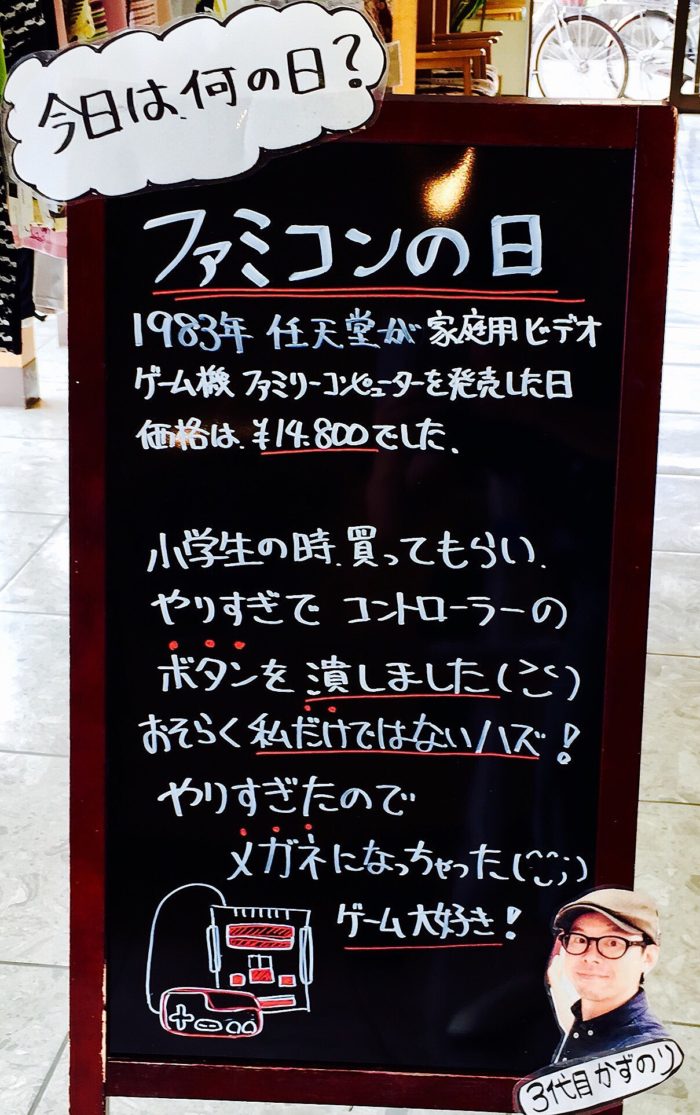 今日は、何の日?
ファミコンの日
1983年 任天堂が 家庭用ビデオ
ゲーム機 ファミリーコンピューターを発売した日
価格は、¥14.800でした、
小学生の時、買ってもらい、
やりすぎで コントローラーの
ボタンを 潰しました(>し<)
おそらく 私だけではないハズ!
やりすぎたので
メガネになっちゃった(^し^;)
ゲーム大好き!
3代目 かずのり